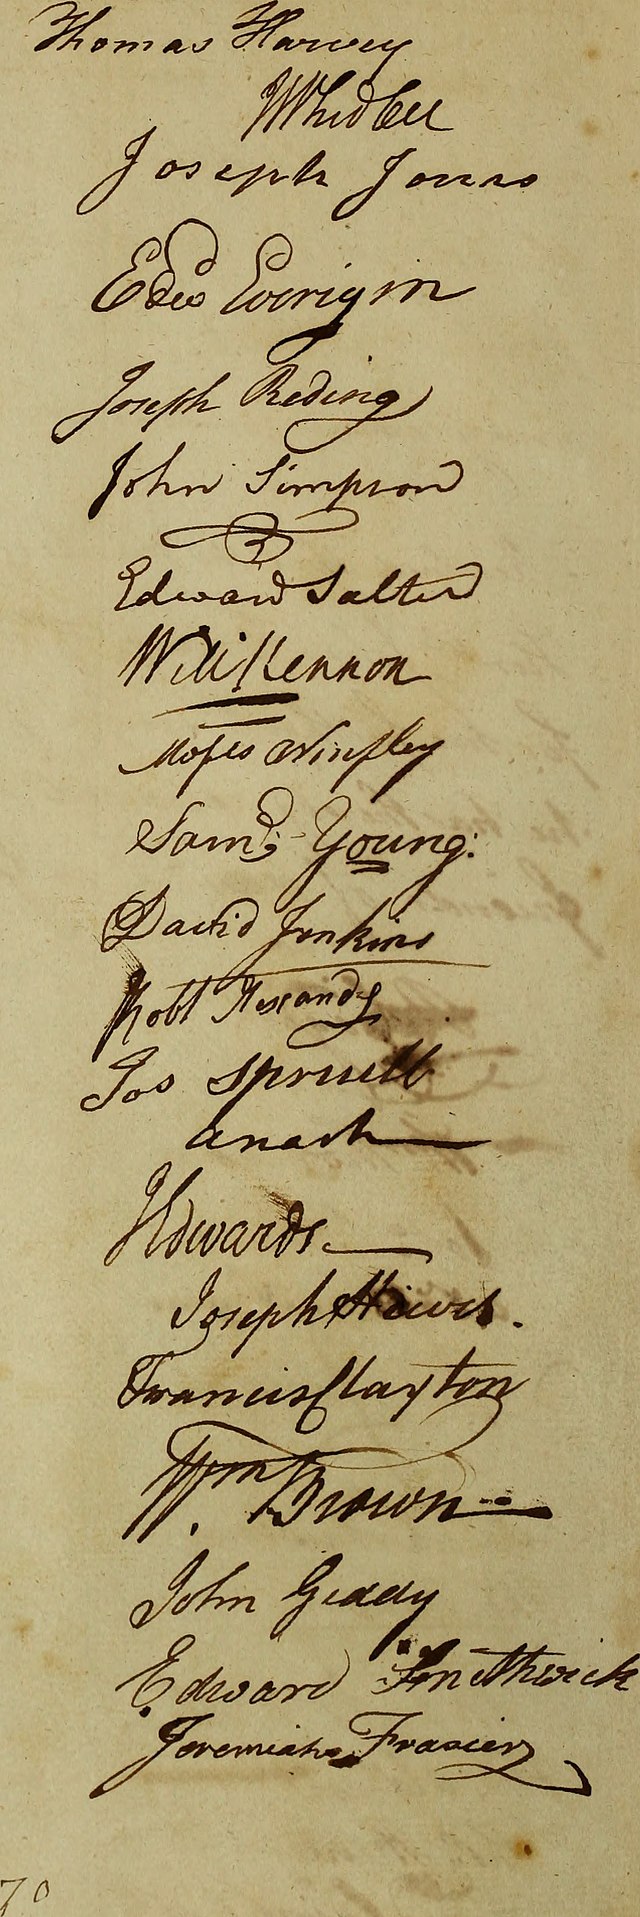 Thomas Harvey
Whidbee
Joseph Jones
Edwd Everigin
Joseph Reding
John Simpson
Edward Salter
Will Kennon
Moses Winsley
Saml Young.
David Jenkins
Robt Alexander
Jos Spruill
A Nash
I Edwards
Joseph Hewes.
Francis Clayton
Wm. Brown
John Geddy
Edward Smithwick
Jeremiah Frasier
70